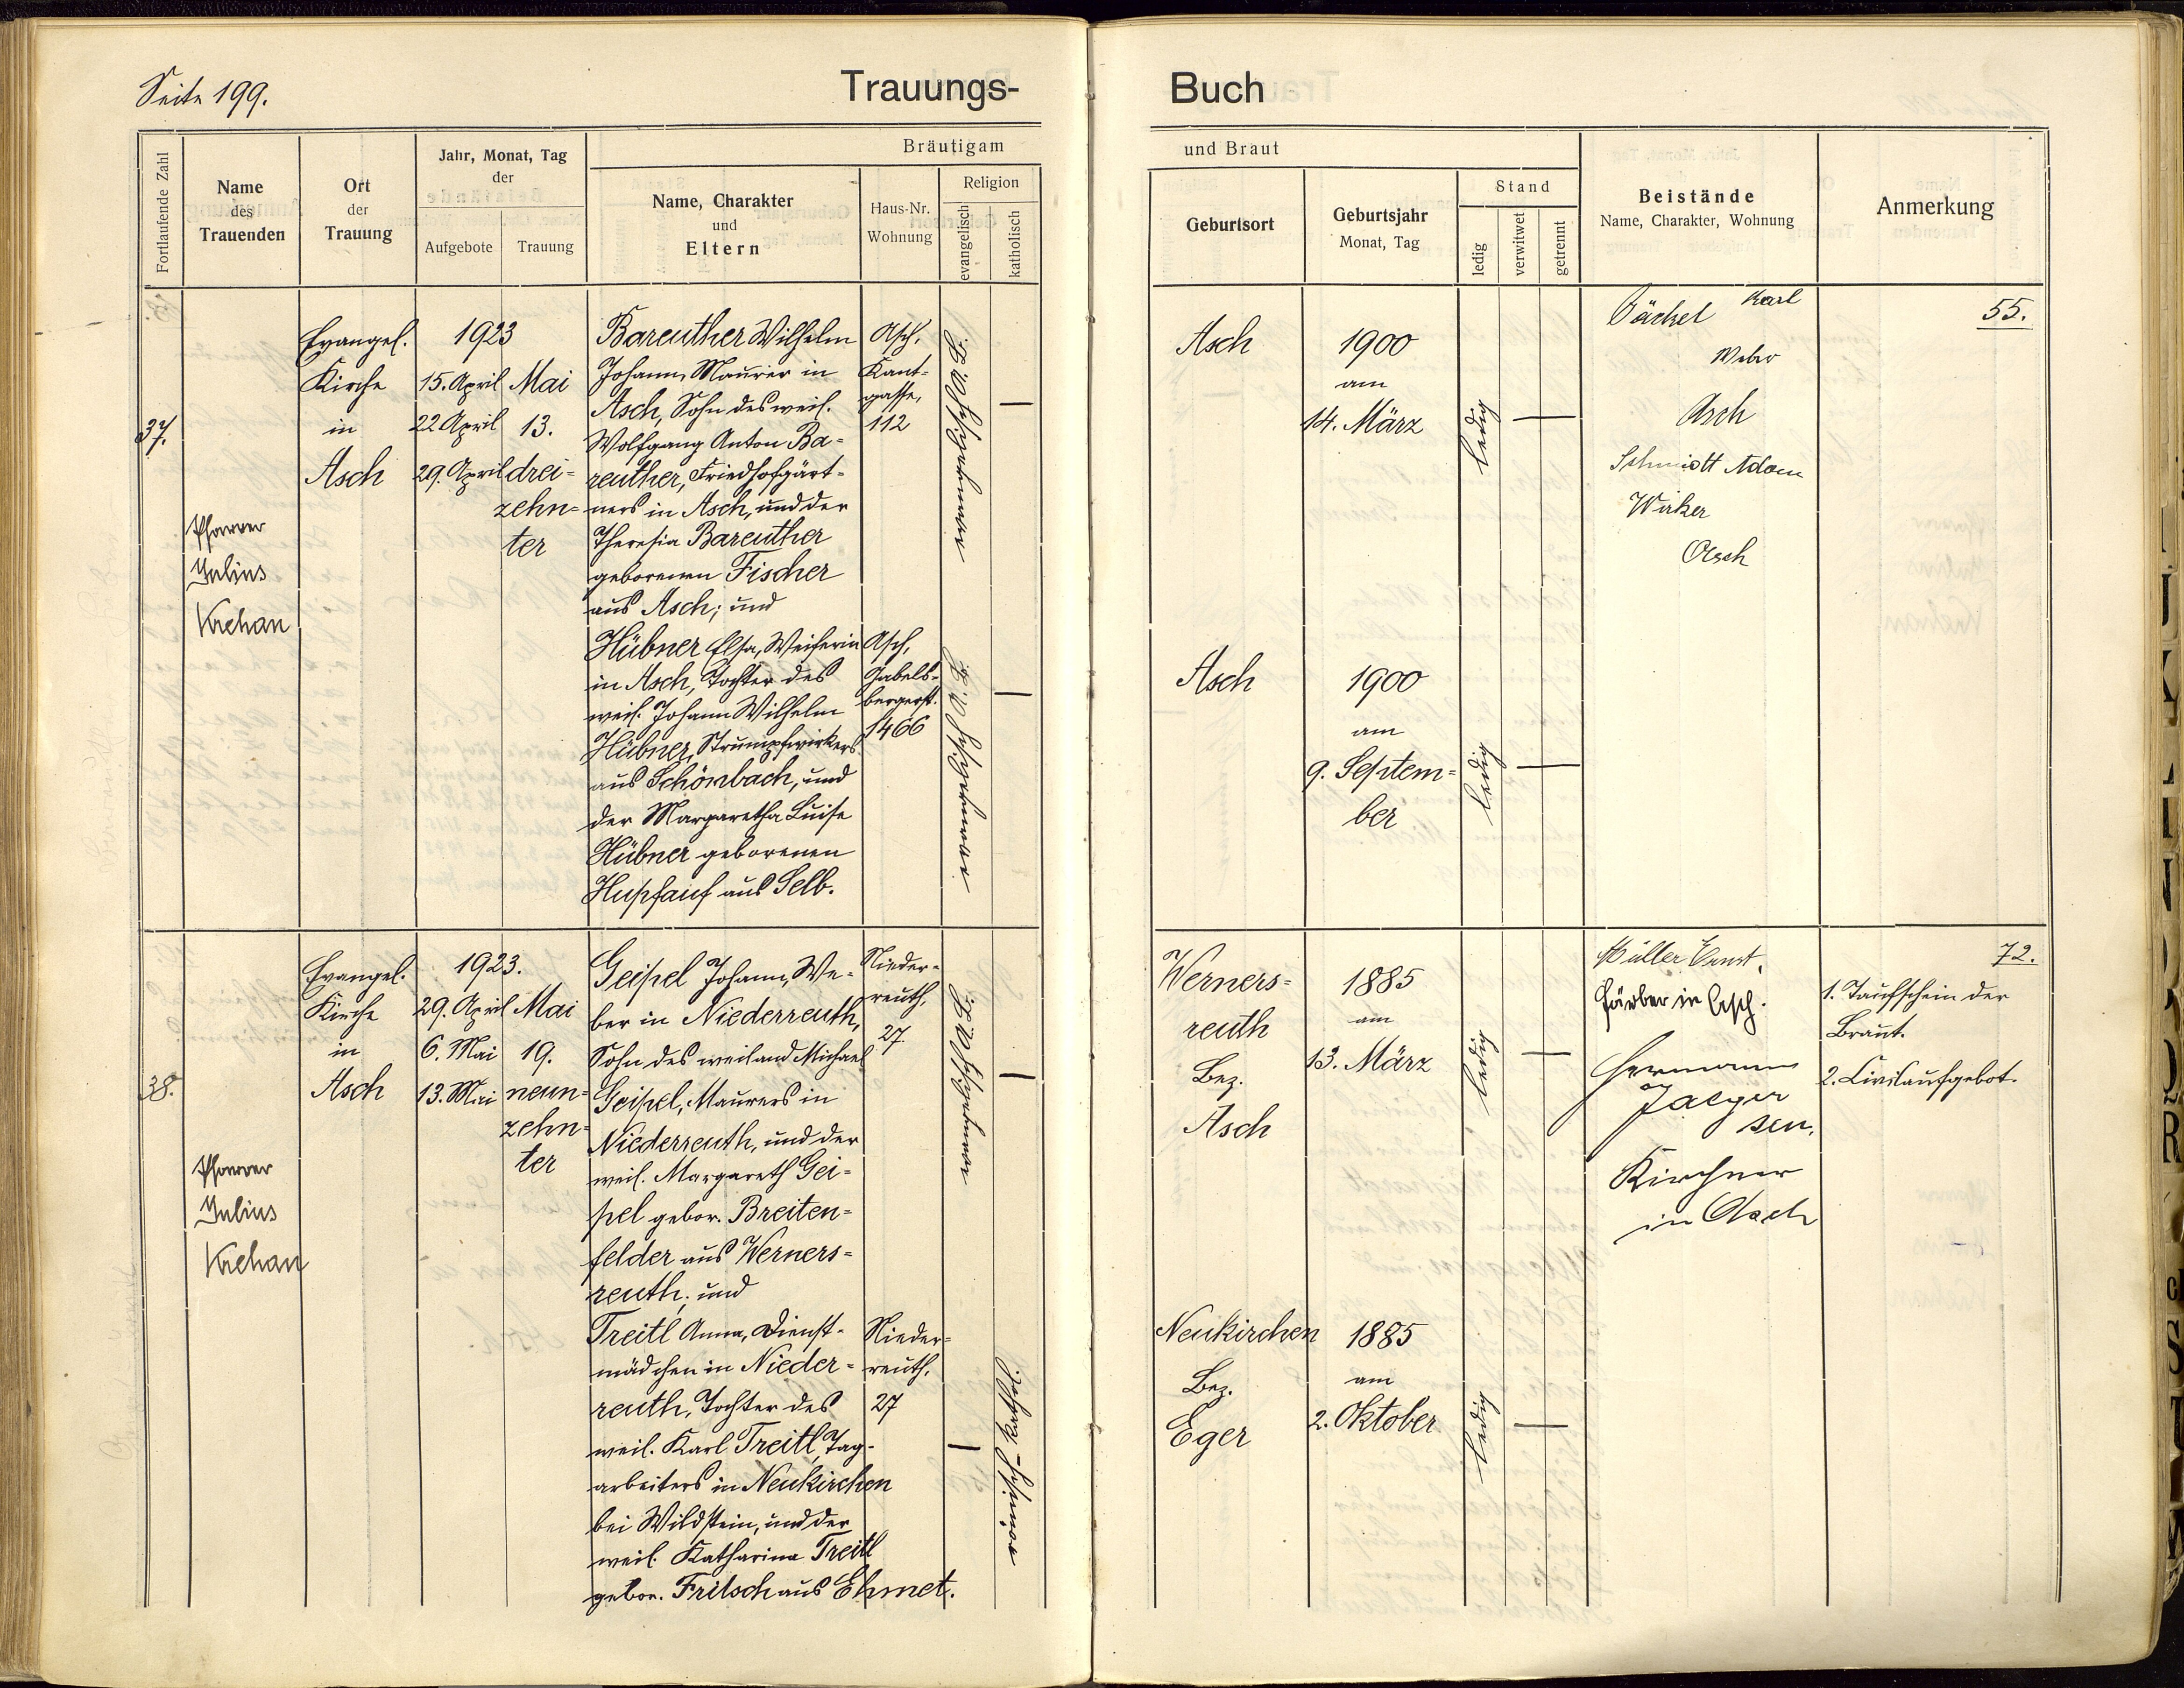 Seite 199.
Trauungs-
Buch
Fortlaufende Zahl
Name
des
Trauenden
Ort
der
Trauung
Jahr, Monat, Tag
der
Aufgebote
Trauung
Bräutigam
Name, Charakter
und
Eltern
Haus-Nr.
Wohnung
Religion
evangelisch
katholisch
und Braut
Geburtsort
Geburtsjahr
Monat, Tag
Stand
ledig
verwitwet
getrennt
Beistände
Name, Charakter, Wohnung
Anmerkung
37.
Pfarrer
Julius
Krehan
Evangel.
Kirche
in
Asch
1923
15. April
22 April
29. April
Mai
13.
drei-
zehn-
ter
Bareuther Wilhelm
Johann, Maurer in
Asch, Sohn des weil.
Wolfgang Anton Ba-
reuther, Friedhofgärt-
ners in Asch, und der
Theresia Bareuther
geborenen Fischer
aus Asch; und
Asch,
Kant-
gasse,
112
evangelisch A. B.
—
Asch
1900
am
14. März
ledig
—
Karl
Weber
Asch
Schmidt Adam
Wirker
Asch
55.
Hübner Elsa, Weiferin
in Asch, Tochter des
weil. Johann Wilhelm
Hübner, Strumpfwirkers
aus Schönbach, und
der Margaretha Luise
Hübner geborenen
Hupfauf aus Selb.
Asch,
Gabels-
bergerst.
1466
evangelisch A. B.
—
Asch
1900
am
9. Septem-
ber
ledig
—
38.
Pfarrer
Julius
Krehan
Evangel.
Kirche
in
Asch
1923.
29. April
6. Mai
13. Mai
Mai
19.
neun-
zehn-
ter
Geipel Johann, We-
ber in Niederreuth,
Sohn des weiland Michael
Geipel, Maurers in
Niederreuth, und der
weil. Margareth Gei-
pel gebor. Breiten-
felder aus Werners-
reuth; und
Nieder-
reuth,
27.
evangelisch A. B.
—
Werners-
reuth
Bez.
Asch
1885
am
13. März
ledig
—
Müller Ernst,
Färber in Asch.
Hermann
Jaeger
sen.
Kirchner
in Asch
72.
1. Taufschein der
Braut.
2. Civilaufgebot.
Treitl Anna, Dienst-
mädchen in Nieder-
reuth, Tochter des
weil. Karl Treitl, Tag-
arbeiters in Neukirchen
bei Wildstein, und der
weil. Katharina Treitl
gebor. Fritsch aus Ehmet.
Nieder-
reuth,
27
—
römisch-kathol.
Neukirchen
Bez.
Eger
1885
am
2. Oktober
ledig
—